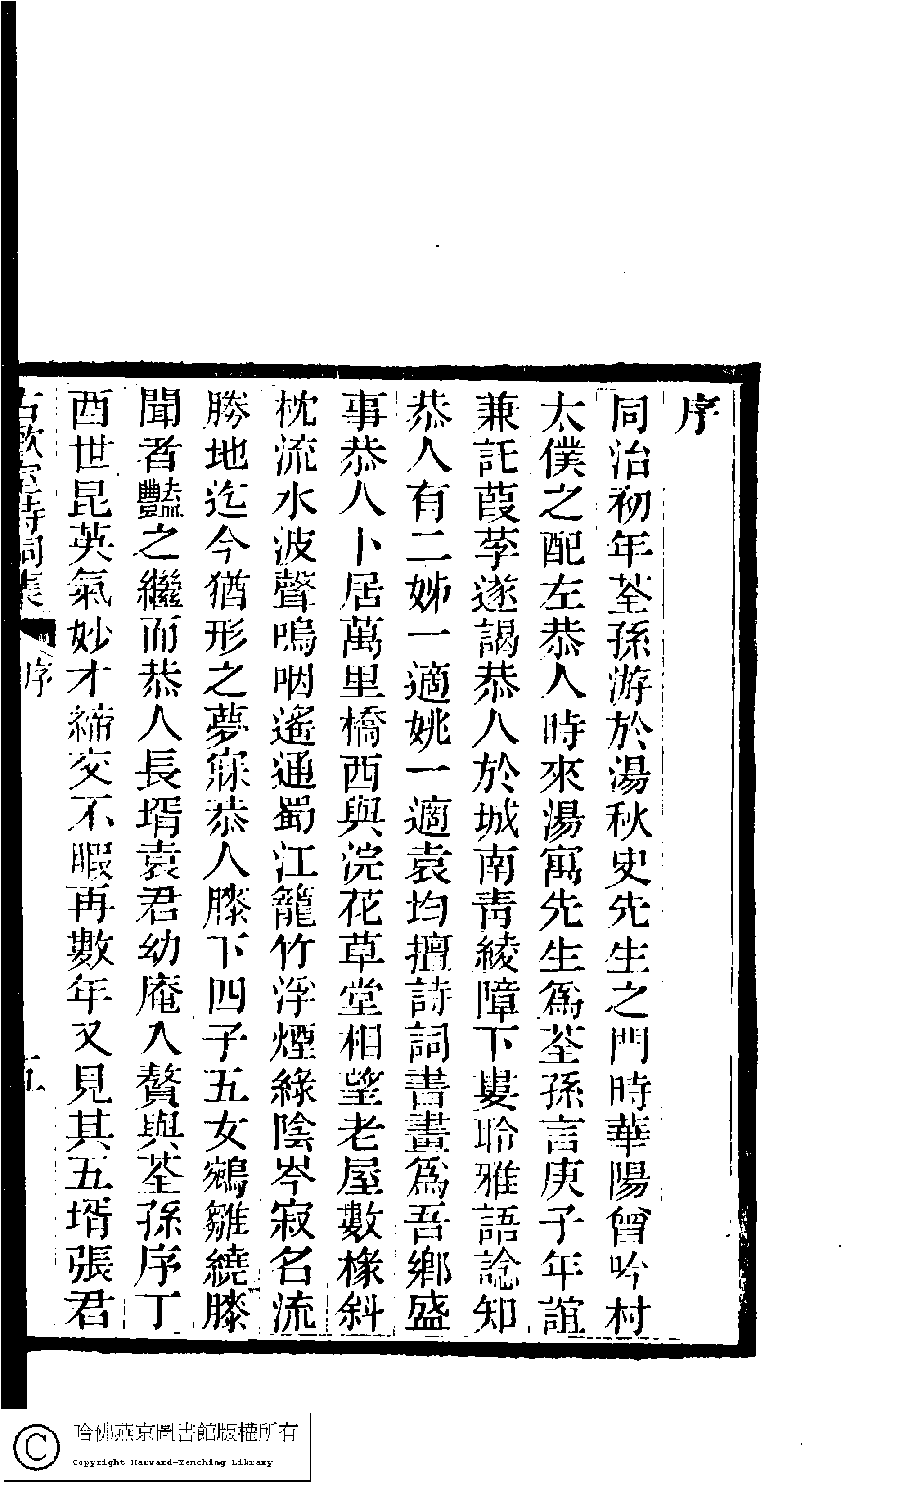 序
同治初年荃孫游於湯秋史先生之門時華陽曾吟村
太僕之配左恭人時來湯寓先生為荃孫言庚子年誼
兼託葭莩遂謁恭人於城南靑綾障下婁聆雅語諗知
恭人有二姊一適姚一適袁均擅詩詞書畫為吾鄉盛
事恭人卜居萬里橋西與浣花草堂相望老屋數椽斜
枕流水波聲嗚咽遙通蜀江籠竹浮煙綠陰岑寂名流
勝地迄今猶形之夢寐恭人膝下四子五女鵷雛繞膝
聞者豔之繼而恭人長壻袁君幼庵入贅與荃孫序丁
酉世昆英氣妙才締交不暇再數年又見其五壻張君
古歡室詩詞集 序 五
哈佛燕京圖書館版權所有
Copyright Harvard-Yenching Library